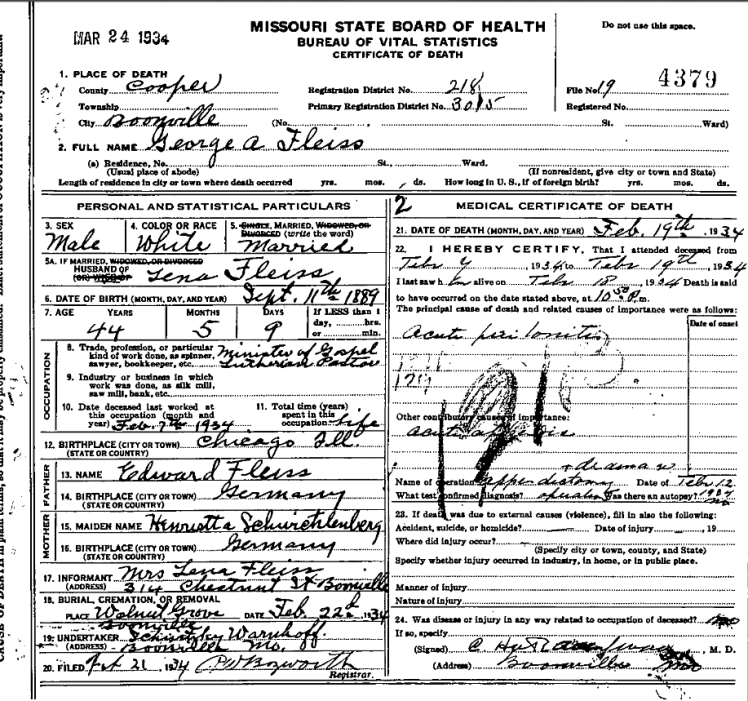 MAR 24 1934
MISSOURI STATE BOARD OF HEALTH
BUREAU OF VITAL STATISTICS
CERTIFICATE OF DEATH
Do not use this space.
1. PLACE OF DEATH
County Cooper
Registration District No. 218
File No. 19
4379
Township
Primary Registration District No. 3015
Registered No.
City Boonville (No. St. Ward)
2. FULL NAME George A Fleiss
(a) Residence, No. St., Ward.
(Usual place of abode) (If nonresident, give city or town and State)
Length of residence in city or town where death occurred yrs. mos. ds. How long in U. S., if of foreign birth? yrs. mos. ds.
PERSONAL AND STATISTICAL PARTICULARS
3. SEX
Male
4. COLOR OR RACE
White
5. SINGLE, MARRIED, WIDOWED, OR DIVORCED (write the word)
Married
5A. IF MARRIED, WIDOWED, OR DIVORCED
HUSBAND OF
(OR) WIFE OF Lena Fleiss
6. DATE OF BIRTH (MONTH, DAY, AND YEAR) Sept. 11th 1889
7. AGE YEARS MONTHS DAYS If LESS than 1
44 5 9 day, hrs.
or min.
OCCUPATION
8. Trade, profession, or particular kind of work done, as spinner, sawyer, bookkeeper, etc. Minister of Gospel Lutheran Pastor
9. Industry or business in which work was done, as silk mill, saw mill, bank, etc.
10. Date deceased last worked at this occupation (month and year) Feb. 7th 1934
11. Total time (years) spent in this occupation Life
12. BIRTHPLACE (CITY OR TOWN) Chicago Ill.
(STATE OR COUNTRY)
FATHER
13. NAME Edward Fleiss
14. BIRTHPLACE (CITY OR TOWN) Germany
(STATE OR COUNTRY)
MOTHER
15. MAIDEN NAME Henrietta
16. BIRTHPLACE (CITY OR TOWN) Germany
(STATE OR COUNTRY)
17. INFORMANT Mrs Lena Fleiss
(ADDRESS) 314 Chestnut St Boonville
18. BURIAL, CREMATION, OR REMOVAL
PLACE Walnut Grove DATE Feb. 22d 1934
Boonville
19. UNDERTAKER
(ADDRESS) Boonville Mo.
20. FILED 21, 1934
Registrar.
2 MEDICAL CERTIFICATE OF DEATH
21. DATE OF DEATH (MONTH, DAY, AND YEAR) Feb. 19th, 1934
22. I HEREBY CERTIFY, That I attended deceased from
Feby, 1934, to Feb 19th, 1934
I last saw h alive on Feb 18, 1934 Death is said
to have occurred on the date stated above, at m.
The principal cause of death and related causes of importance were as follows:
Date of onset
Acute peritonitis
121
Other contributory causes of importance:
Acute
Name of operation Date of Feb 12
What test confirmed diagnosis? Was there an autopsy?
23. If death was due to external causes (violence), fill in also the following:
Accident, suicide, or homicide? Date of injury , 19
Where did injury occur?
(Specify city or town, county, and State)
Specify whether injury occurred in industry, in home, or in public place.
Manner of injury
Nature of injury
24. Was disease or injury in any way related to occupation of deceased? No
If so, specify
(Signed) , M. D.
(Address) Boonville Mo